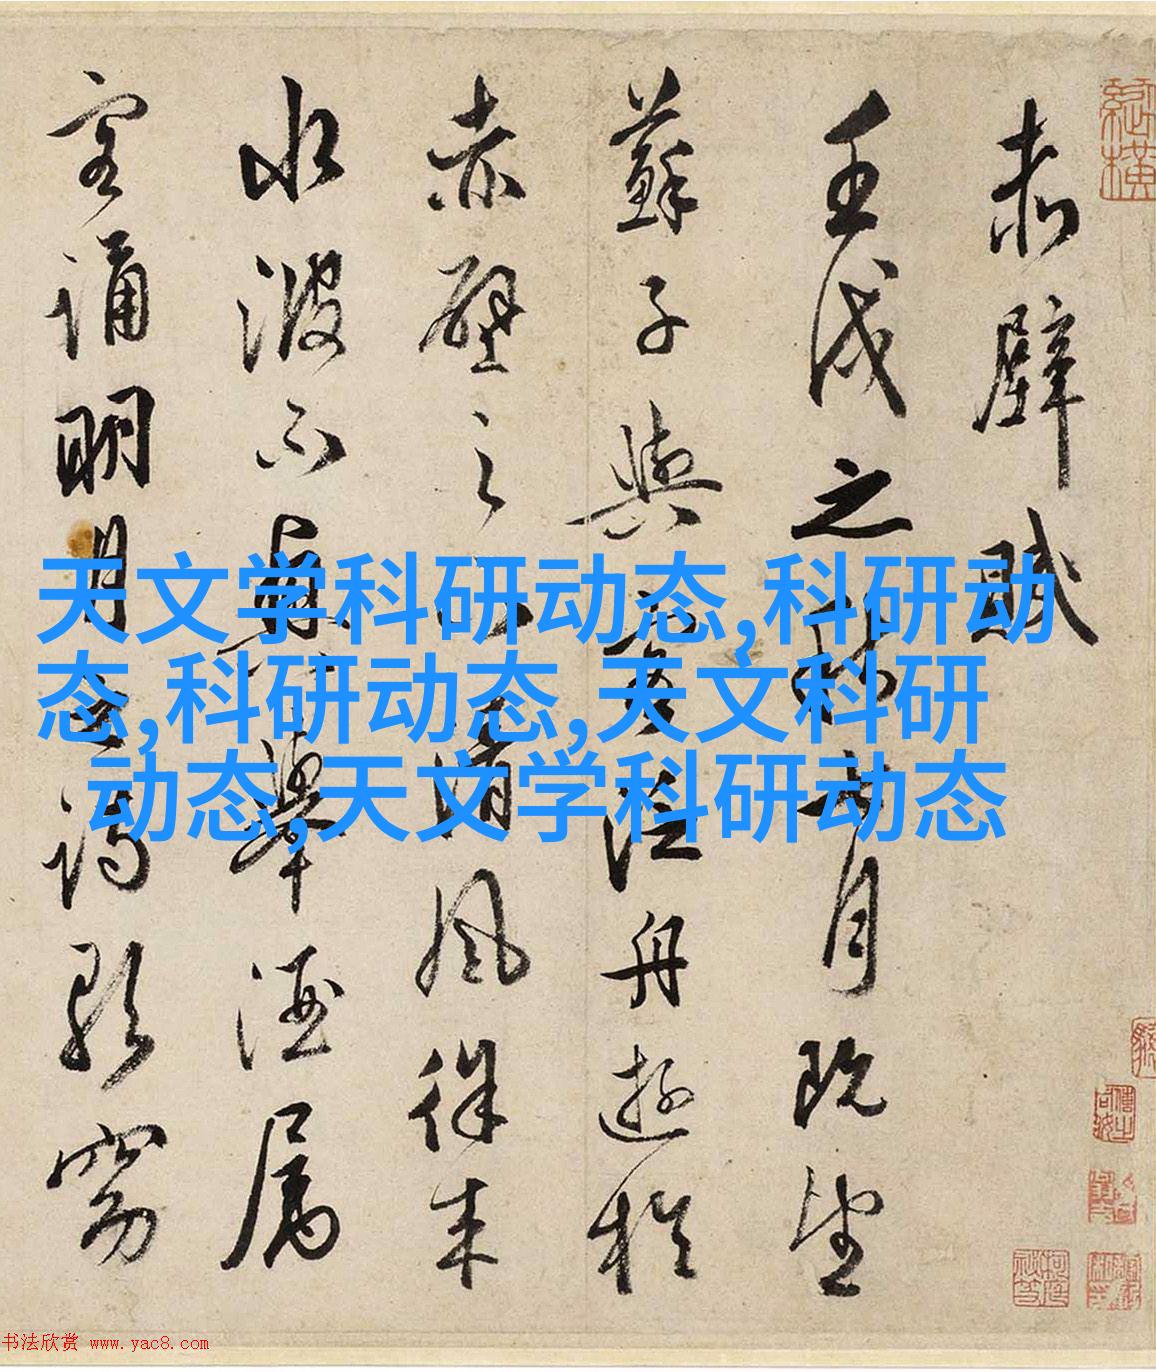 赤壁賦
壬戌之秋七月既望
蘇子與客泛舟遊於
赤壁之下清風徐来
水波不興舉酒属
客誦明月之詩歌窈
天文学科研动态,科研动
态,科研动态,天文科研
动态,天文学科研动态
书法欣赏 www.yac8.com